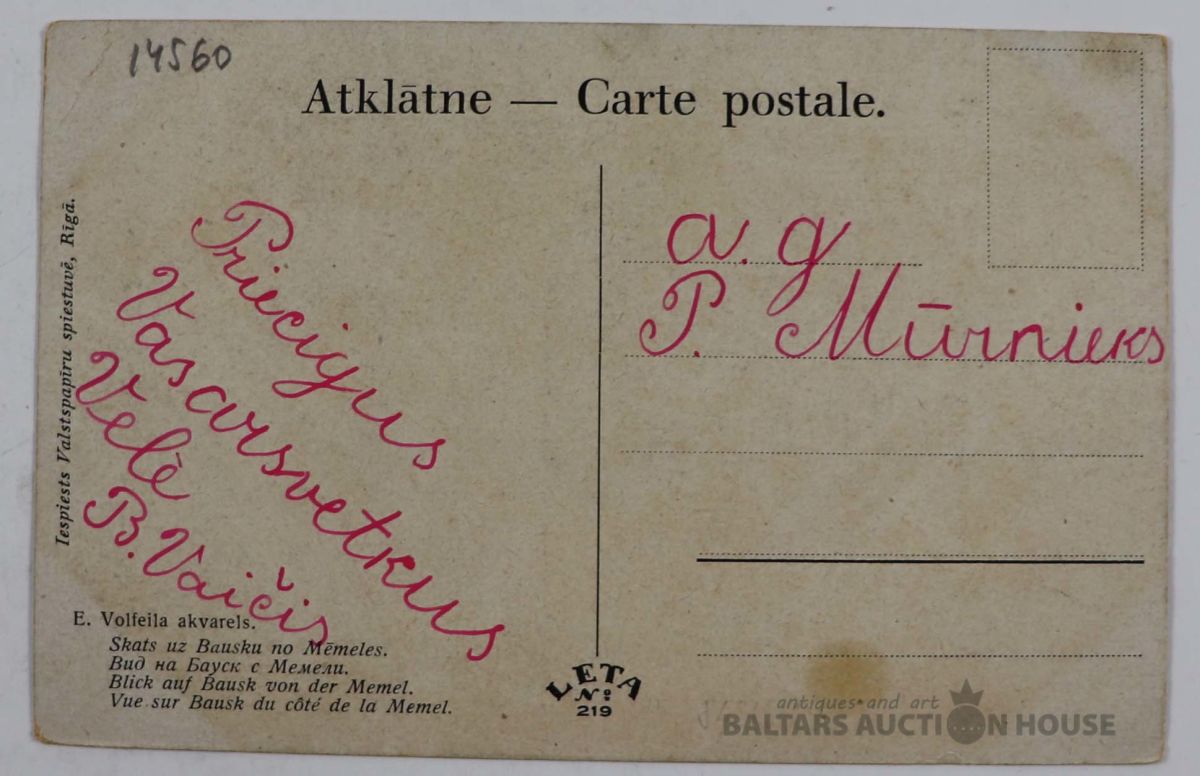 14560
Atklātne — Carte postale.
Iespiests Valstspapīru spiestuvē, Rīgā.
Priecigus
Vasarsvetkus
Velē
B. Vaičis
E. Volfeila akvarels.
Skats uz Bausku no Mēmeles.
Вид на Бауск с Мемели.
Blick auf Bausk von der Memel.
Vue sur Bausk du côté de la Memel.
LETA
№
219
a. g
P. Mūrnieks
antiques and art
BALTARS AUCTION HOUSE